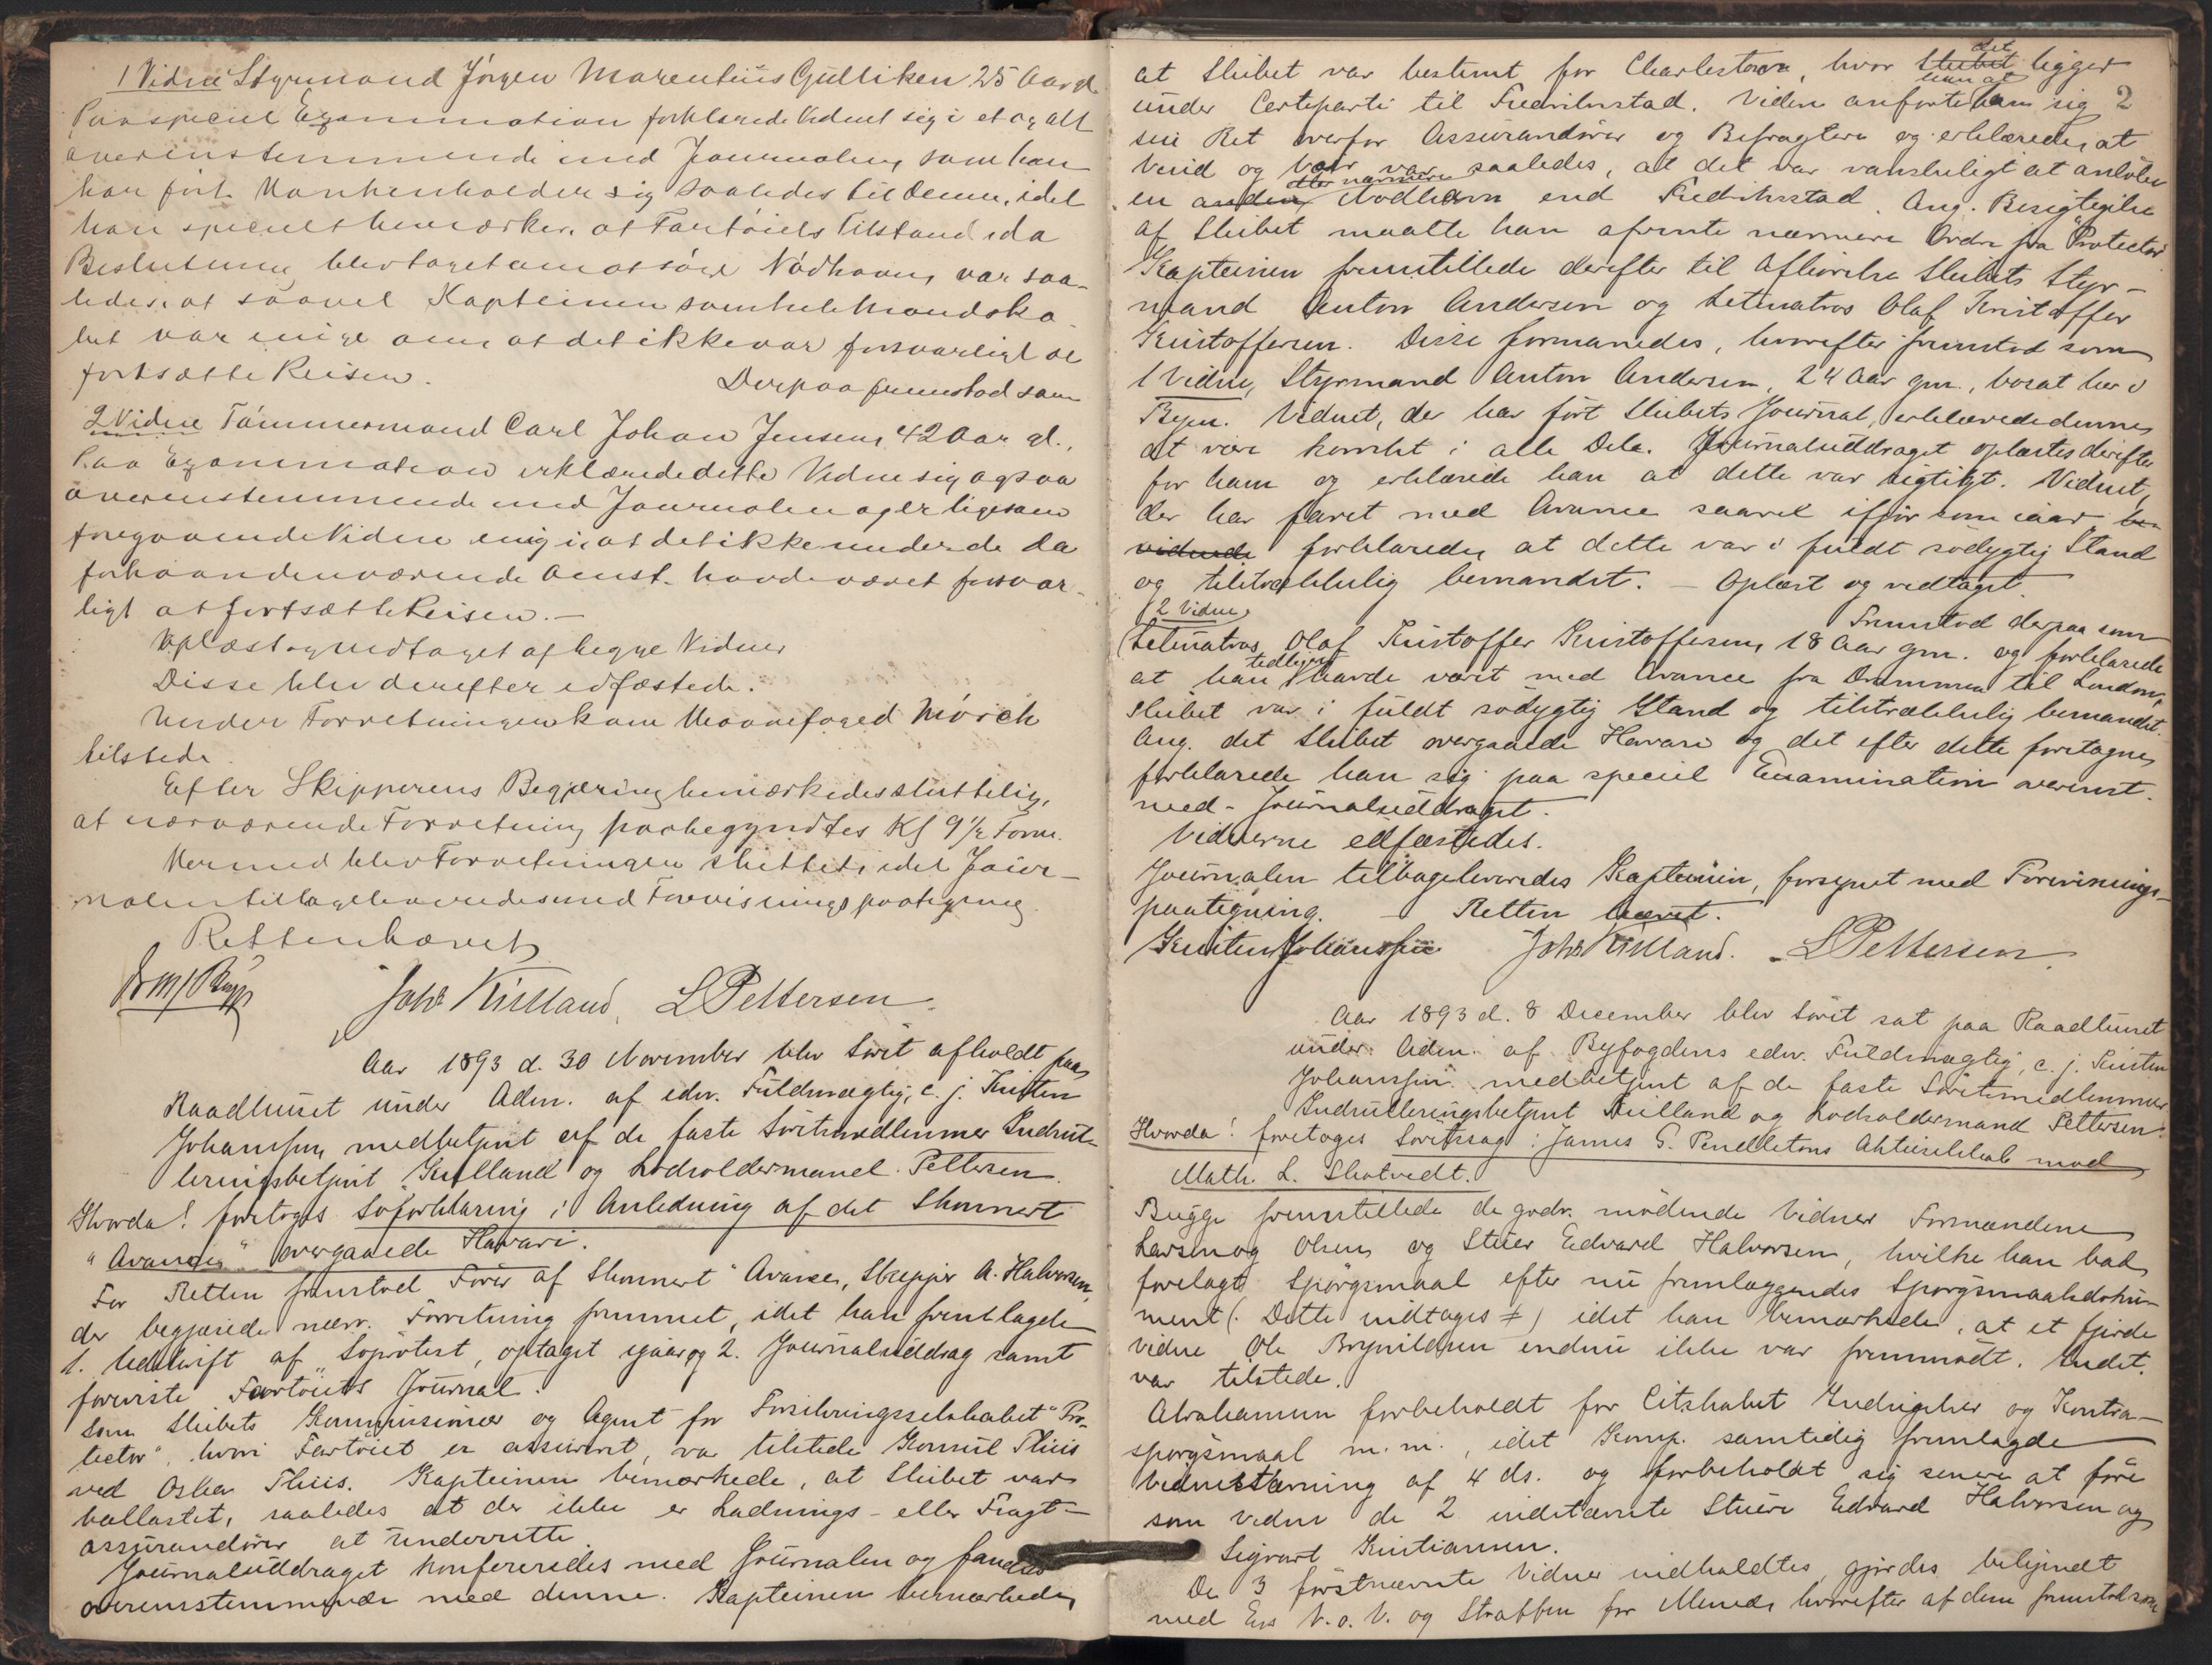 1 Vidne Styrmand Jörgen Marentius Gulliksen 25 Aar gl.
Paa speciel Examination forklarede Vidnet sig i et og alt
överensstemmende med Journalen, som han
har fört. Han henholder sig saaledes til denne, idet
han specielt bemærker, at Fartöiets Tilstand, da
Beslutning blev taget om at söge Nödhavn, var saa-
ledes, at saavel Kapteinen som hele Mandska-
bet var enige om at det ikke var forsvarligt at
fortsætte Reisen.
Derpaa fremstod som
2 Vidne Tömmermand Carl Johan Jensen, 42 Aar gl.,
Paa Examination erklærede dette Vidne sig ogsaa
överensstemmende med Journalen og er ligesom
foregaaende Vidne enig i, at det ikke under de da
forhaandenværende Omst. havde været forsvar-
ligt at fortsætte Reisen.-
Oplæst og vedtaget af begge Vidner
Disse blev derefter edfæstede.
Under Forretningen kom Havnefoged Mörch
tilstede.
Efter Skipperens Begjæring bemærkedes sluttelig,
at nærværende Forretning paabegyndtes Kl 9½ Form.
Hermed blev Forretningen sluttet, idet Jour-
nalen tilbageleveredes med Forevisningspaategning.
Retten hævet
Johs Kielland. L Pettersen.
Aar 1893 d. 30 November blev Söret afholdt paa
Raadhuset under Adm. af edsv. Fuldmægtig, c. j. Kristen
Johanssen, medbetjent af de faste Söretsmedlemmer Indrul-
leringsbetjent Kielland og Lodsoldermand Pettersen.
Hvorda! foretoges Söforklaring i Anledning af det Skonnert
"Avance" overgaaede Havari.
For Retten fremstod Förer af Skonnert "Avance, Skipper A. Halvorsen,
der begjærede nærv. Forretning fremmet, idet han fremlagde
1. Udskrift af Söprotest, optaget igaar og 2. Journaluddrag samt
foreviste Fartöiets Journal.
Som Skibets Kommissionær og Agent for Forsikringsselskabet "Pro-
tector", hvori Fartöiet er assureret, var tilstede Konsul Thiis
ved Oskar Thiis. Kapteinen bemærkede, at Skibet var
ballastet, saaledes at der ikke er Ladnings- eller Fragt-
assurandörer at underrette.
Journaluddraget konfereredes med Journalen og fandtes
överensstemmende med denne. Kapteinen bemærkede,
2
at Skibet var bestemt for Charlestown, hvor Skibet det ligger
under Certeparti til Fredrikstad. Viden anförte han at han sig
sin Ret overfor Assurandörer og Befragtere og erklærede, at
Veird og Veir var saaledes, at det var vanskeligt at anlöbe
en anden eller nærmere Nödhavn end Fredrikstad. Ang. Besigtigelse
af Skibet maatte han afvente nærmere Ordre fra "Protector"
Kapteinen fremstillede derefter til Afhörelse Skibets Styr-
mand Anton Andersen og Letmatros Olaf Kristoffer
Kristoffersen. Disse formanedes, hvorefter fremstod som
1 Vidne, Styrmand Anton Andersen, 24 Aar gm., bosat her i
Byen. Vidnet, der har fört Skibets Journal, erklærede denne
at være korrekt i alle Dele. Journaluddraget oplæstes derefter
for ham og erklærede han at dette var rigtigt. Vidnet,
der har faret med Avance saavel ifjor som iaar, be-
vidnede forklarede, at dette var i fuldt södygtig Stand
og tilstrækkelig bemandet. - Oplæst og vedtaget.
Fremstod derpaa som
2 Vidne,
Letmatros Olaf Kristoffer Kristoffersen, 18 Aar gm. og forklarede
at han tidligere havde været med Avance fra Drammen til London,
Skibet var i fuldt södygtig Stand og tilstrækkelig bemandet.
Ang. det Skibet overgaaede Havari og det efter dette foretagne
forklarede han sig paa speciel Examination overenst.
med Journaluddraget.
Vidnerne edfæstedes.
Journalen tilbageleveredes Kapteinen, forsynet med Forevisnings-
paategning. - Retten hævet.
Kristen Johanssen Johs Kielland. L Pettersen.
Aar 1893 d. 8 December blev Söret sat paa Raadhuset
under Adm. af Byfogdens edsv. Fuldmægtig, c. j. Kristen
Johanssen medbetjent af de faste Söretsmedlemmer
Indrulleringsbetjent Kielland og Lodsoldermand Pettersen.
Hvorda! foretoges Söretssag: James S. Pendletons Aktieselskab mod
Math. L. Skotvedt.
Bugge fremstillede de godv. mödende Vidner Formændene
Larsen og Olsen, og Stuer Edvard Halvorsen, hvilke han bad
forelagt Spörgsmaal efter nu fremlæggendes Spörgsmaalsdoku-
ment (: Dette indtages ≠) idet han bemærkede, at et fjerde
Vidne Ole Brynildsen endnu ikke var fremmödt. Indst.
var tilstede.
Abrahamsen forbeholdt for Citskabet Indsigelser og Kontra-
spörgsmaal m.m., idet Komp. samtidig fremlagde
Vidnestævning af 4 ds. og forbeholdt sig senere at före
som Vidne de 2 indstævnte Stuere Edvard Halvorsen og
Sigvart Kristiansen.
De 3 förstnævnte Vidner indkaldtes, gjordes bekjendt
med Eds V. o. V. og Straffen for Mened, hvorefter af dem fremstod som